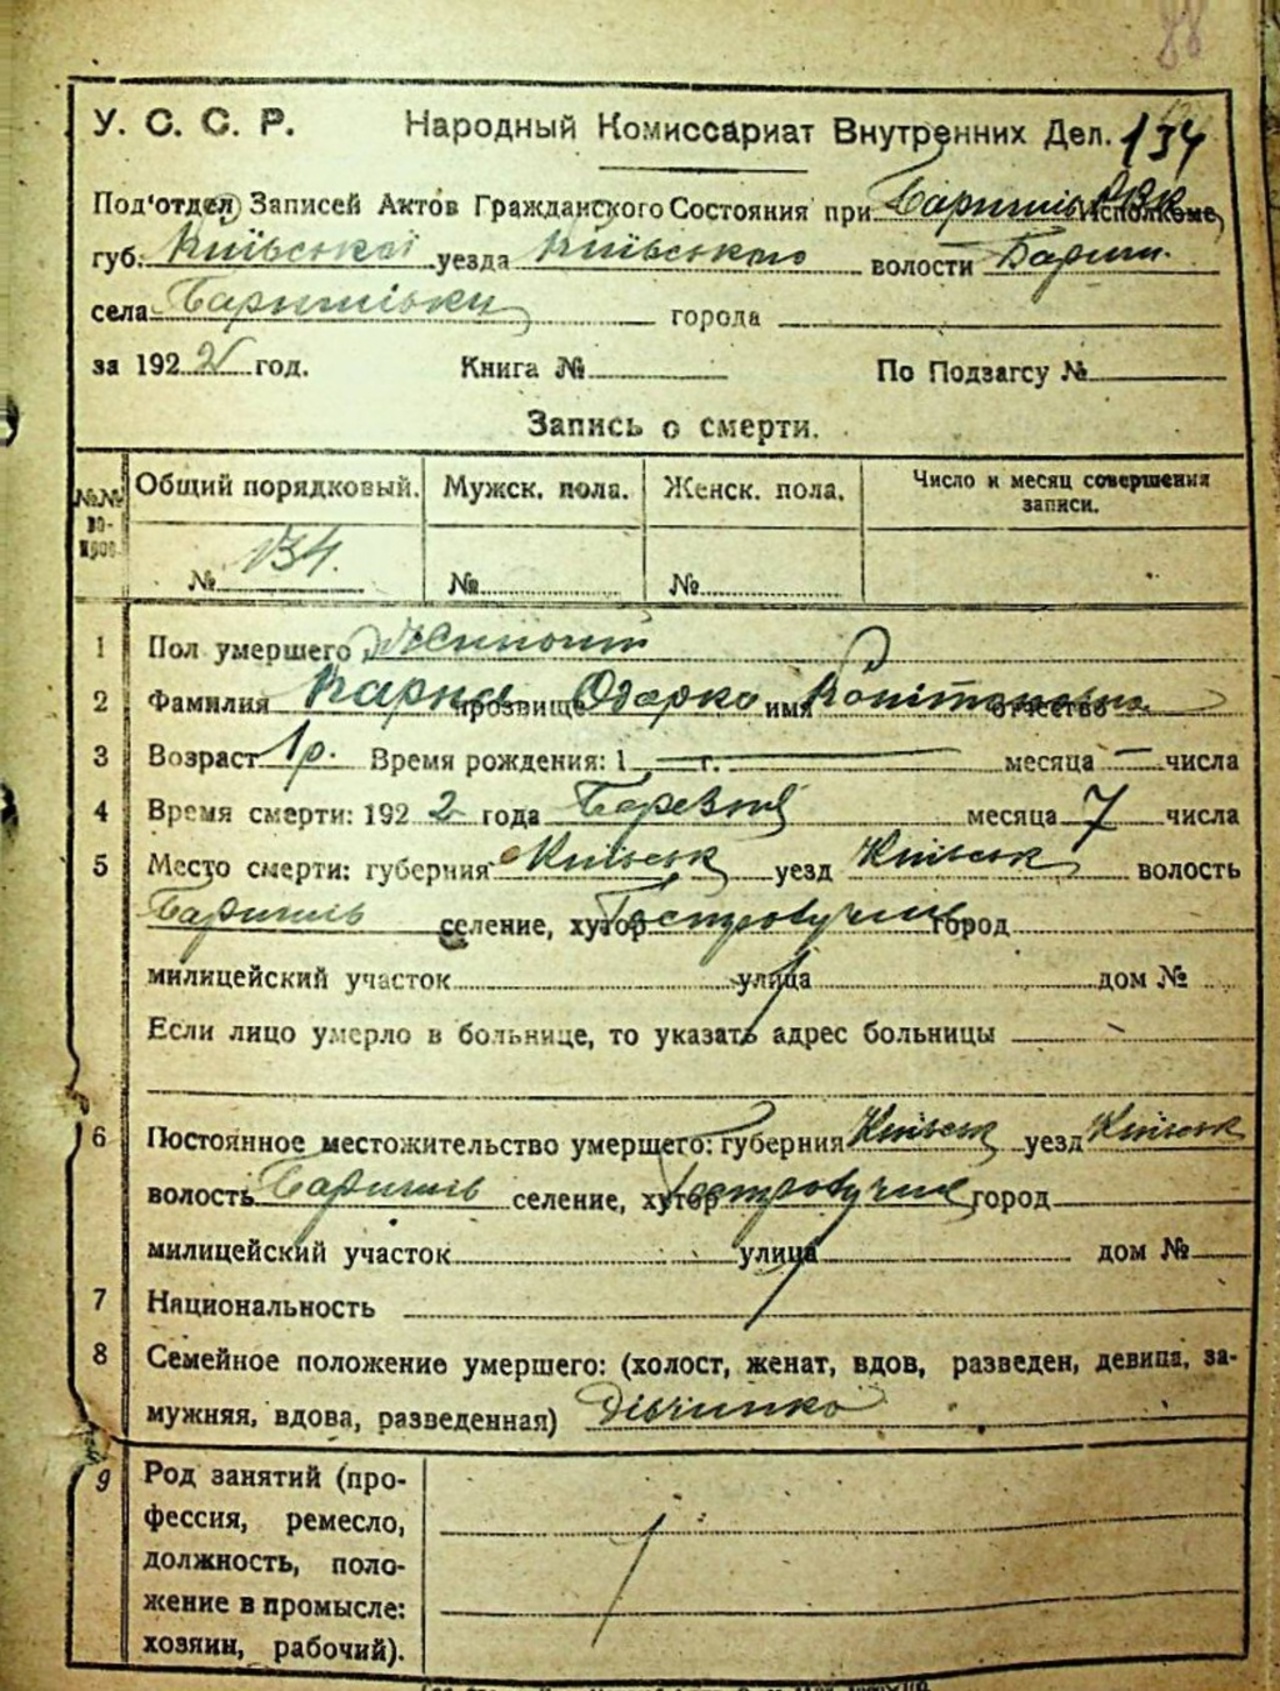 88
У. С. С. Р. Народный Комиссариат Внутренних Дел. 134
Под'отдел Записей Актов Гражданского Состояния при Баришів РВК Исполкоме
губ. Київської уезда Київського волости Бариш.
села Баришівки города
за 1922 год. Книга № По Подзагсу №
Запись о смерти.
Общий порядковый. Мужск. пола. Женск. пола. Число и месяц совершения записи.
№ 134. № №
1 Пол умершего Жиночий
2 Фамилия прозвище Одарка имя отчество
3 Возраст 1 р. Время рождения: 1 г. — месяца — числа
4 Время смерти: 1922 года Березня месяца 7 числа
5 Место смерти: губерния Київськ уезд Київськ волость
Баришів селение, хутор город
милицейский участок улица дом №
Если лицо умерло в больнице, то указать адрес больницы
6 Постоянное местожительство умершего: губерния Київськ уезд Київськ
волость Баришів селение, хутор город
милицейский участок улица дом №
7 Национальность
8 Семейное положение умершего: (холост, женат, вдов, разведен, девица, за-
мужняя, вдова, разведенная) Дівчинка
9 Род занятий (про-
фессия, ремесло,
должность, поло-
жение в промысле:
хозяин, рабочий).